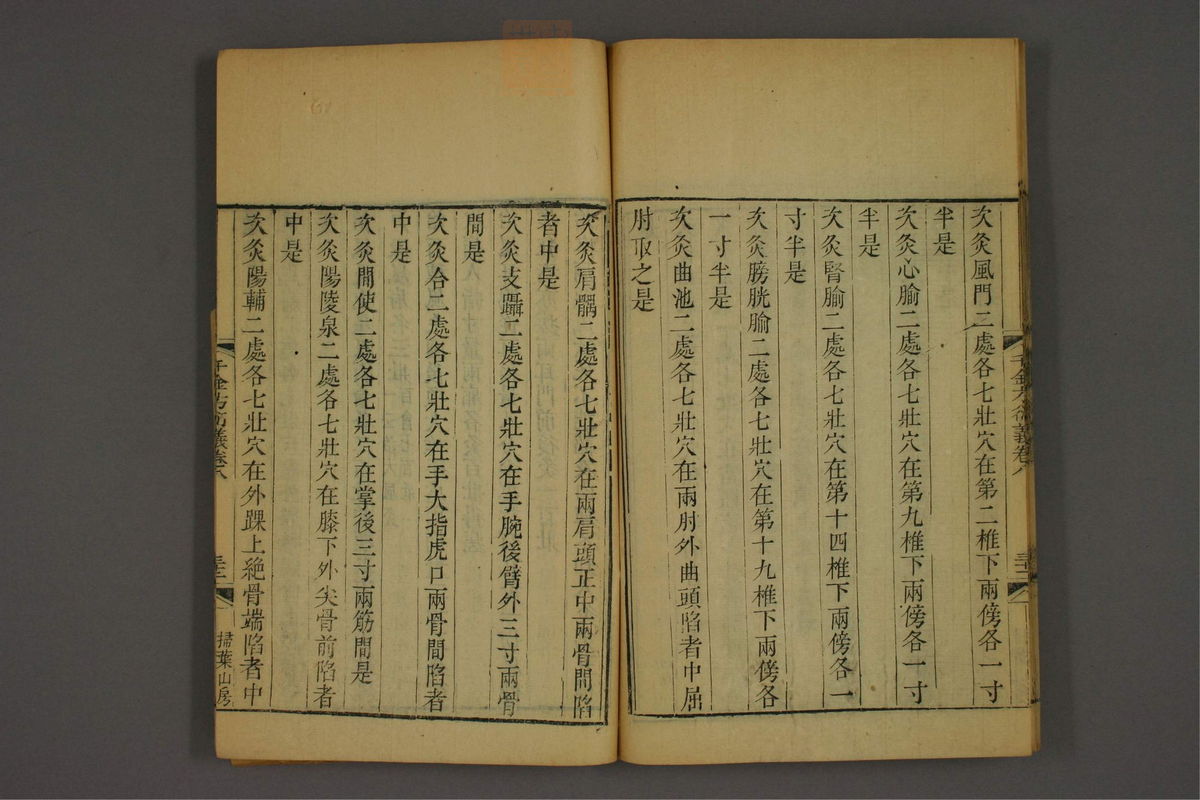 次灸風門二處各七壯穴在第二椎下兩傍各一寸
半是
次灸心腧二處各七壯穴在第九椎下兩傍各一寸
半是
次灸腎腧二處各七壯穴在第十四椎下兩傍各一
寸半是
次灸膀胱腧二處各七壯穴在第十九椎下兩傍各
一寸半是
次灸曲池二處各七壯穴在兩肘外曲頭陷者中屈
肘取之是
次灸肩髃二處各七壯穴在兩肩頭正中兩骨間陷
者中是
次灸支躡二處各七壯穴在手腕後臂外三寸兩骨
間是
次灸合二處各七壯穴在手大指虎口兩骨間陷者
中是
次灸間使二處各七壯穴在掌後三寸兩筋間是
次灸陽陵泉二處各七壯穴在膝下外尖骨前陷者
中是
次灸陽輔二處各七壯穴在外踝上絕骨端陷者中
千金方衍義卷八
掃葉山房